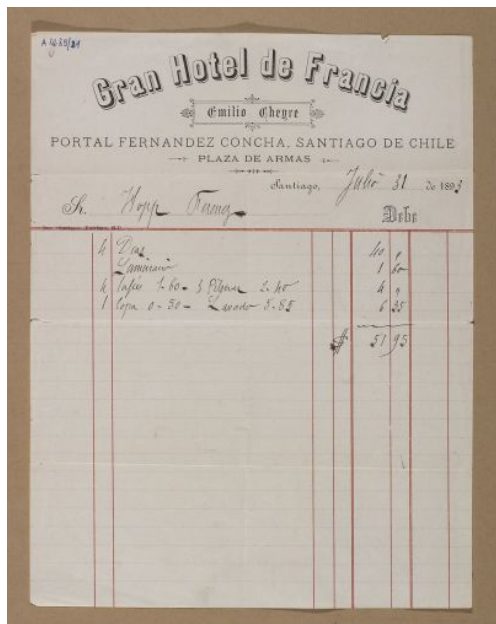 Gran Hotel de Francia
Emilio Cheyre
PORTAL FERNANDEZ CONCHA. SANTIAGO DE CHILE
PLAZA DE ARMAS
Santiago, Julio 31 de 1893
Sr. Hopp Ferenz
Debe
4 Dias 40 "
1 60
4 Cafés 1-60 - 3 2-40 4 "
1 Copa 0-50 - Lavado 5-85 6 35
$ 51 95